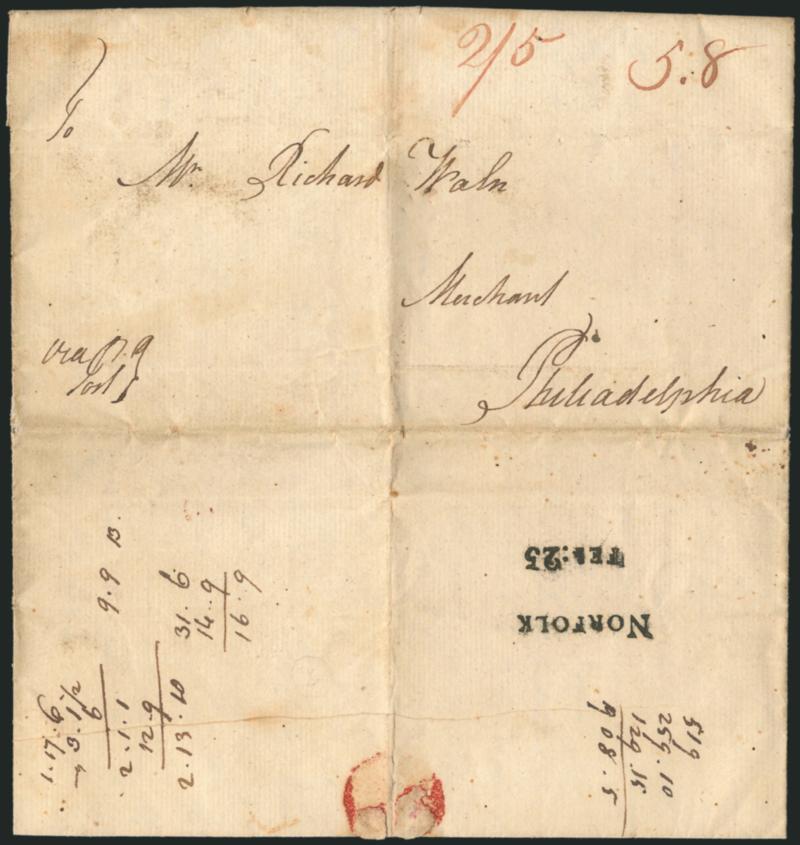 2/5
5.8
To
Mr. Richard Waln
Merchant
Philadelphia
Post
FEB: 25
NORFOLK
1.17.6
3.1½
6
2.1.1
12.9
2.13.10
9.9
31.6
14.9
16.9
519
259.10
129.15
908.5